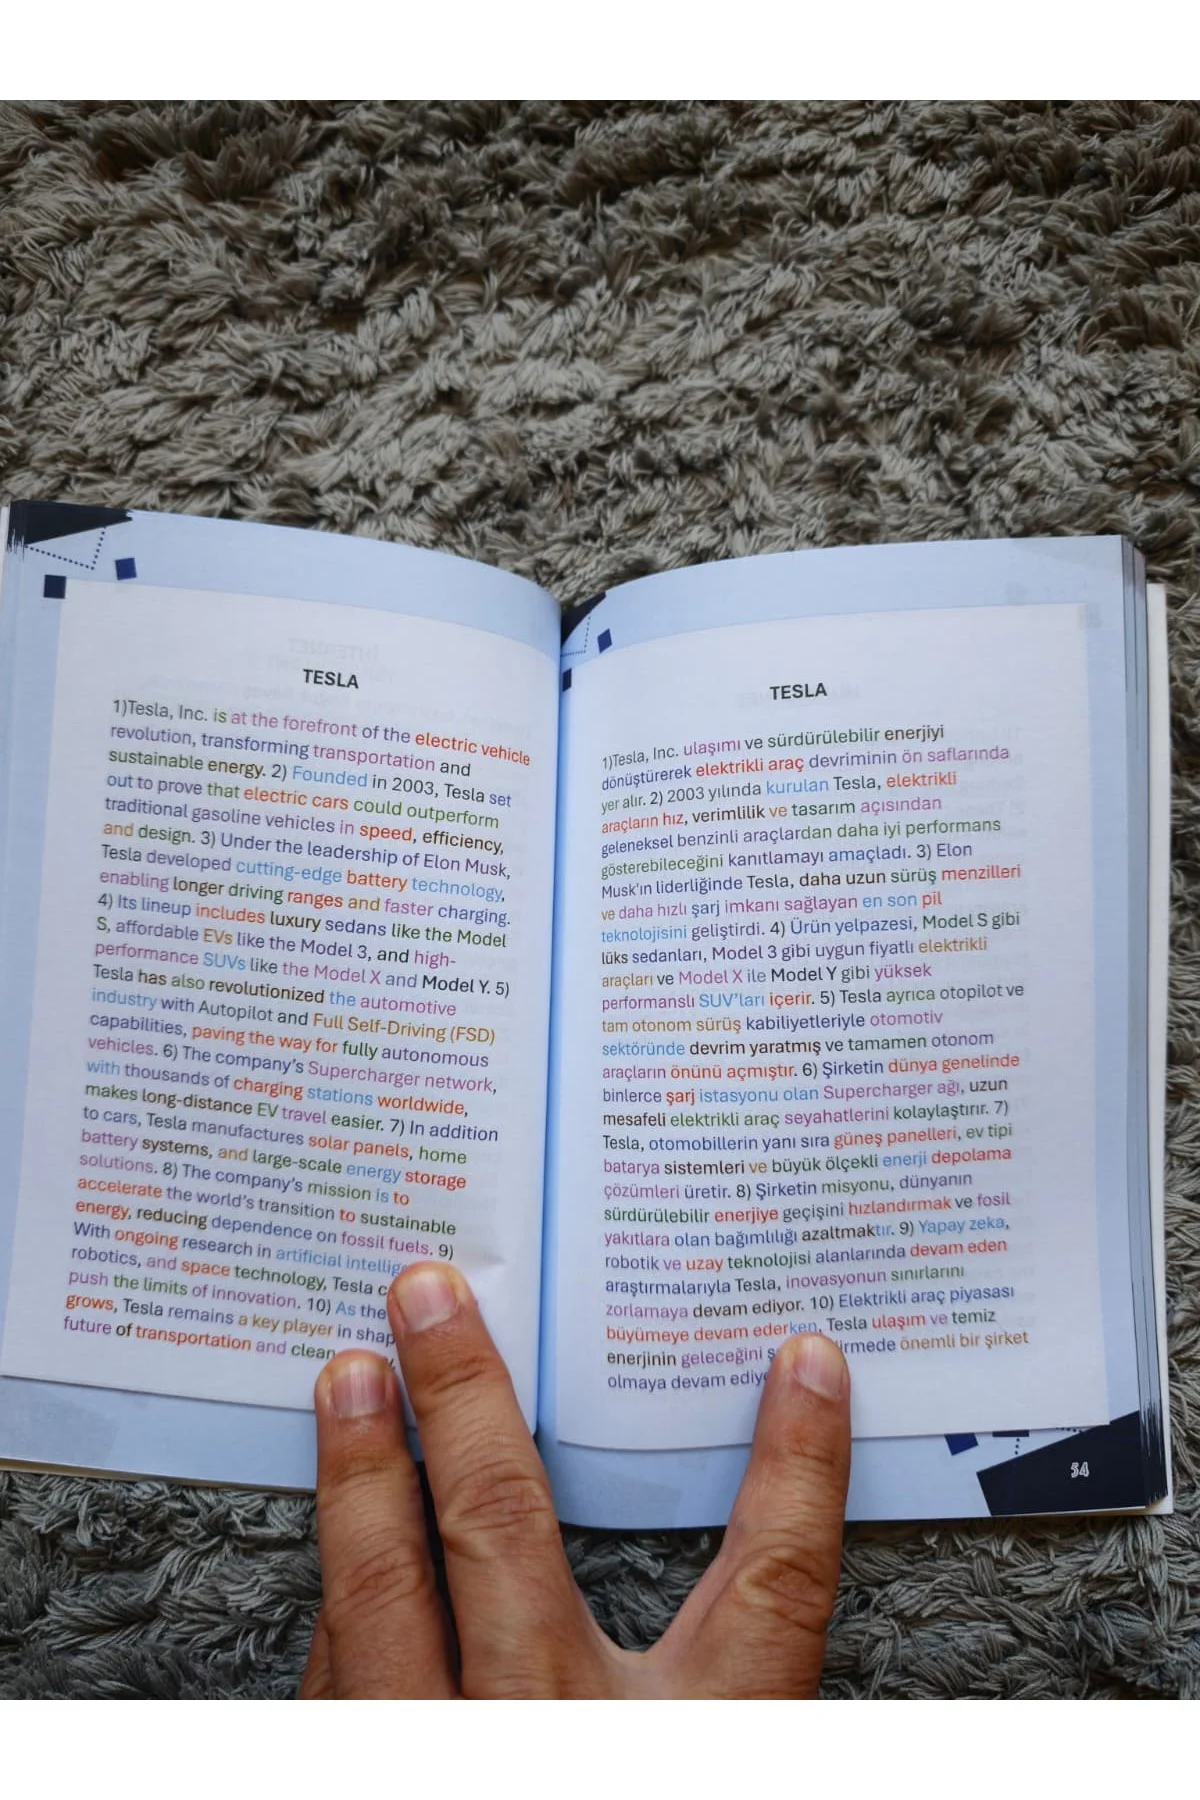 TESLA
1)Tesla, Inc. is at the forefront of the electric vehicle
revolution, transforming transportation and
sustainable energy. 2) Founded in 2003, Tesla set
out to prove that electric cars could outperform
traditional gasoline vehicles in speed, efficiency,
and design. 3) Under the leadership of Elon Musk,
Tesla developed cutting-edge battery technology,
enabling longer driving ranges and faster charging.
4) Its lineup includes luxury sedans like the Model
S, affordable EVs like the Model 3, and high-
performance SUVs like the Model X and Model Y. 5)
Tesla has also revolutionized the automotive
industry with Autopilot and Full Self-Driving (FSD)
capabilities, paving the way for fully autonomous
vehicles. 6) The company's Supercharger network,
with thousands of charging stations worldwide,
makes long-distance EV travel easier. 7) In addition
to cars, Tesla manufactures solar panels, home
battery systems, and large-scale energy storage
solutions. 8) The company's mission is to
accelerate the world's transition to sustainable
energy, reducing dependence on fossil fuels. 9)
With ongoing research in artificial
robotics, and space technology, Tesla
push the limits of innovation. 10) As the
grows, Tesla remains a key player in
future of transportation and clean
TESLA
1)Tesla, Inc. ulaşımı ve sürdürülebilir enerjiyi
dönüştürerek elektrikli araç devriminin ön saflarında
yer alır. 2) 2003 yılında kurulan Tesla, elektrikli
araçların hız, verimlilik ve tasarım açısından
geleneksel benzinli araçlardan daha iyi performans
gösterebileceğini kanıtlamayı amaçladı. 3) Elon
Musk'ın liderliğinde Tesla, daha uzun sürüş menzilleri
ve daha hızlı şarj imkanı sağlayan en son pil
teknolojisini geliştirdi. 4) Ürün yelpazesi, Model S gibi
lüks sedanları, Model 3 gibi uygun fiyatlı elektrikli
araçları ve Model X ile Model Y gibi yüksek
performanslı SUV'ları içerir. 5) Tesla ayrıca otopilot ve
tam otonom sürüş kabiliyetleriyle otomotiv
sektöründe devrim yaratmış ve tamamen otonom
araçların önünü açmıştır. 6) Şirketin dünya genelinde
binlerce şarj istasyonu olan Supercharger ağı, uzun
mesafeli elektrikli araç seyahatlerini kolaylaştırır. 7)
Tesla, otomobillerin yanı sıra güneş panelleri, ev tipi
batarya sistemleri ve büyük ölçekli enerji depolama
çözümleri üretir. 8) Şirketin misyonu, dünyanın
sürdürülebilir enerjiye geçişini hızlandırmak ve fosil
yakıtlara olan bağımlılığı azaltmaktır. 9) Yapay zeka,
robotik ve uzay teknolojisi alanlarında devam eden
araştırmalarıyla Tesla, inovasyonun sınırlarını
zorlamaya devam ediyor. 10) Elektrikli araç piyasası
büyümeye devam ederken, Tesla ulaşım ve temiz
enerjinin geleceğini önemli bir şirket
olmaya devam
54